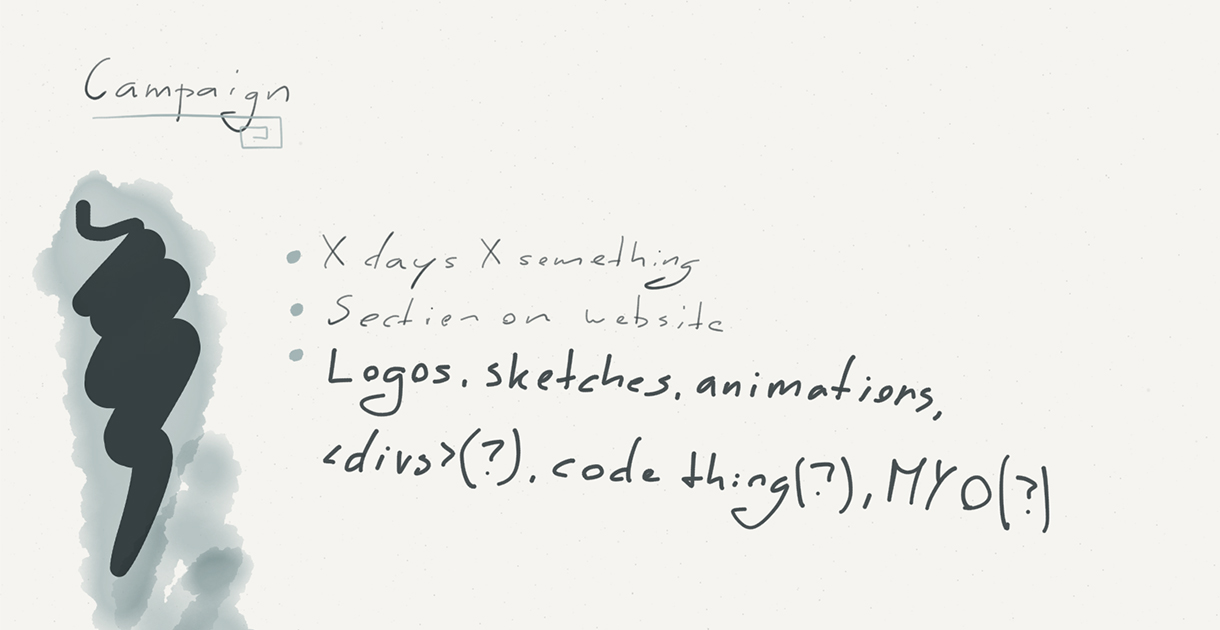 Campaign
X days X something
Section on website
Logos, sketches, animations,
<divs>(?), code thing(?), MYO(?)